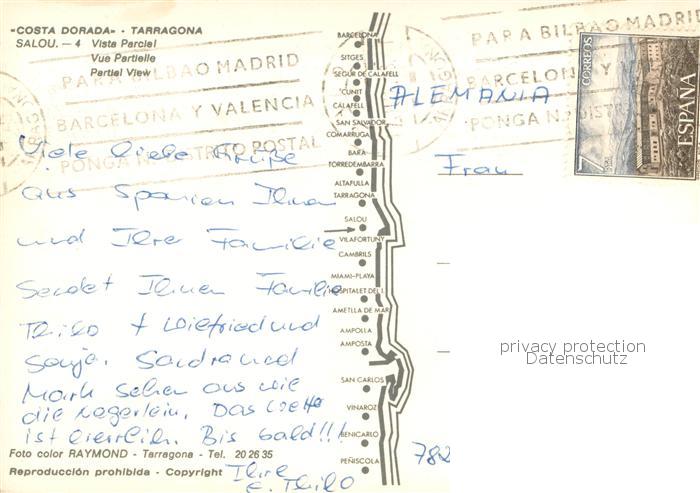 «COSTA DORADA» - TARRAGONA
SALOU. — 4 Vista Parcial
Vue Partielle
Partial View
PARA BILBAO MADRID
BARCELONA Y VALENCIA
PONGA N.º DISTRITO POSTAL
PARA BILBAO MADRID
BARCELONA Y
PONGA N.º DIST
CORREOS
7
ESPAÑA
ALEMANIA
Frau
Viele liebe Grüße
aus Spanien Ihnen
und Ihrer Familie
Sendet Ihnen Familie
Thilo + Wilfried und
Sonja. Sandra und
Mark sehen aus wie
die Negerlein. Das Wetter
ist herrlich. Bis bald!!!
Ihre
E. Thilo
BARCELONA
SITGES
SEGUR DE CALAFELL
CUNIT
CALAFELL
SAN SALVADOR
COMARRUGA
BARA
TORREDEMBARRA
ALTAFULLA
TARRAGONA
SALOU
VILAFORTUNY
CAMBRILS
MIAMI-PLAYA
HOSPITALET DEL I.
AMETLLA DE MAR
AMPOLLA
AMPOSTA
SAN CARLOS
VINAROZ
BENICARLO
PEÑISCOLA
privacy protection
Datenschutz
782
Foto color RAYMOND - Tarragona - Tel. 20 26 35
Reproducción prohibida - Copyright